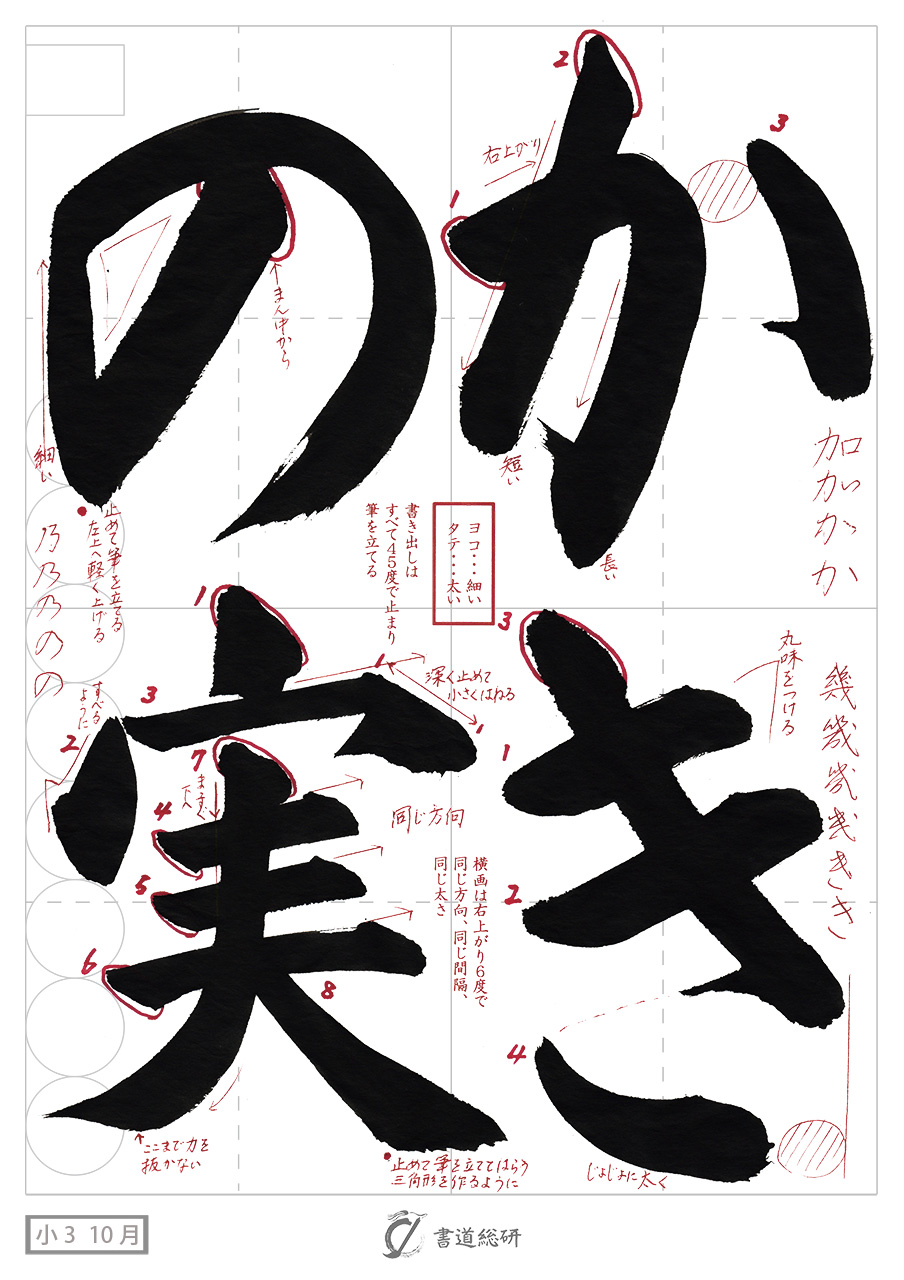 かき
の実
1
2
3
右上がり
短い
長い
加
加
か
か
まん中から
細い
止めて筆を立てる
左上へ軽く上げる
乃
乃
の
の
の
ヨコ・・・細い
タテ・・・太い
書き出しは
すべて45度で止まり
筆を立てる
3
1
2
4
丸味をつける
幾
幾
幾
き
き
き
じょじょに太く
1
2
3
4
5
6
7
8
すべる
ように
深く止めて
小さくはねる
ますぐ
下へ
同じ方向
横画は右上がり6度で
同じ方向、同じ間隔、
同じ太さ
ここまで力を
抜かない
止めて筆を立ててはらう
三角形を作るように
小3 10月
書道総研